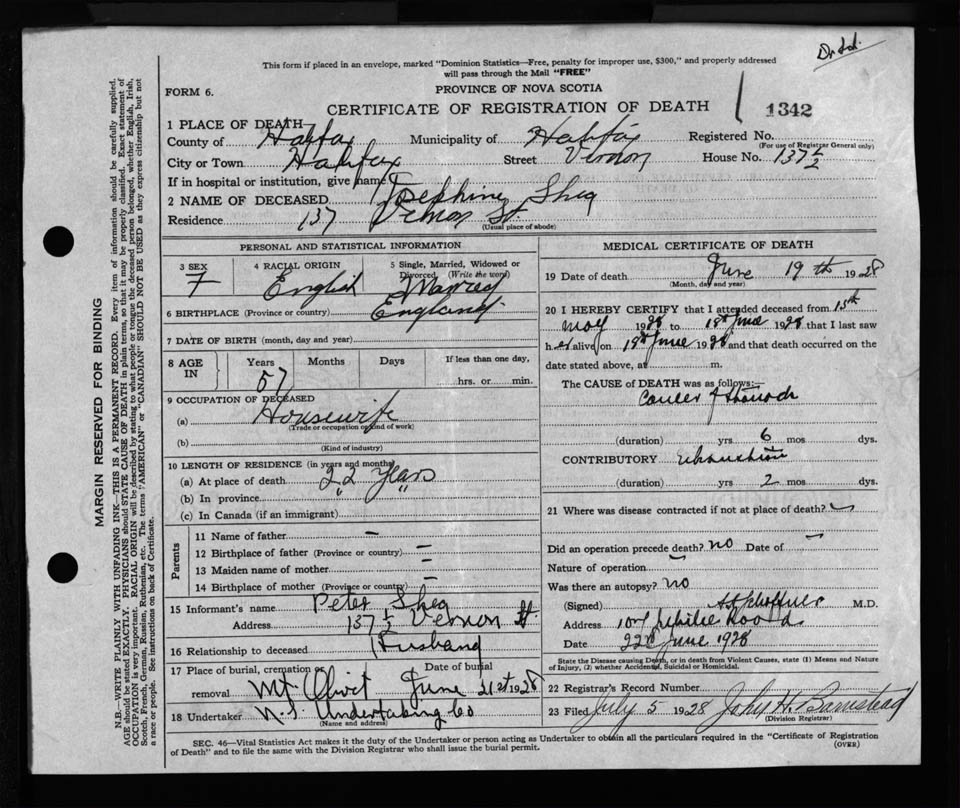 This form if placed in an envelope, marked "Dominion Statistics—Free, penalty for improper use, $300," and properly addressed
will pass through the Mail "FREE"
FORM 6.
PROVINCE OF NOVA SCOTIA
CERTIFICATE OF REGISTRATION OF DEATH
1342
1 PLACE OF DEATH
County of Halifax Municipality of Halifax Registered No.
(For use of Registrar General only)
City or Town Halifax Street Vernon House No. 137½
If in hospital or institution, give name
2 NAME OF DECEASED Josephine Shea
Residence 137 Vernon St
(Usual place of abode)
PERSONAL AND STATISTICAL INFORMATION
3 SEX 4 RACIAL ORIGIN 5 Single, Married, Widowed or
Divorced (Write the word)
F English Married
6 BIRTHPLACE (Province or country) England
7 DATE OF BIRTH (month, day and year)
8 AGE IN Years Months Days If less than one day,
57 hrs. or min.
9 OCCUPATION OF DECEASED
(a) Housewife
(Trade or occupation or kind of work)
(b)
(Kind of industry)
10 LENGTH OF RESIDENCE (in years and months)
(a) At place of death 22 Years
(b) In province " "
(c) In Canada (if an immigrant)
Parents
11 Name of father —
12 Birthplace of father (Province or country) —
13 Maiden name of mother —
14 Birthplace of mother (Province or country) —
15 Informant's name Peter Shea
Address 137½ Vernon St.
16 Relationship to deceased Husband
17 Place of burial, cremation or Date of burial
removal Mt. Olivet June 21st 1928
18 Undertaker N.S. Undertaking Co
(Name and address)
MEDICAL CERTIFICATE OF DEATH
19 Date of death June 19th 1928
(Month, day and year)
20 I HEREBY CERTIFY that I attended deceased from 15th
May 1928 to 18th June 1928 that I last saw
her alive on 18th June 1928 and that death occurred on the
date stated above, at m.
The CAUSE of DEATH was as follows:—
Cancer of Stomach
(duration) yrs 6 mos dys.
CONTRIBUTORY Exhaustion
(duration) yrs 2 mos dys.
21 Where was disease contracted if not at place of death?
Did an operation precede death? no Date of
Nature of operation
Was there an autopsy? no
(Signed) M.D.
Address Jubilee Road
Date 22d June 1928
State the Disease causing Death, or in death from Violent Causes, state (1) Means and Nature
of Injury, (2) whether Accidental, Suicidal or Homicidal.
22 Registrar's Record Number
23 Filed July 5 1928 John H. Barnstead
(Division Registrar)
SEC. 46—Vital Statistics Act makes it the duty of the Undertaker or person acting as Undertaker to obtain all the particulars required in the "Certificate of Registration
of Death" and to file the same with the Division Registrar who shall issue the burial permit.
(OVER)
MARGIN RESERVED FOR BINDING
N.B.—WRITE PLAINLY WITH UNFADING INK—THIS IS A PERMANENT RECORD. Every item of information should be carefully supplied.
AGE should be stated EXACTLY. PHYSICIANS should STATE CAUSE OF DEATH in plain terms, so that it may be properly classified. Exact statement of
OCCUPATION is very important. RACIAL ORIGIN will be described by stating to what people or tongue the deceased person belonged, whether English, Irish,
Scotch, French, German, Russian, Ruthenian, etc. The terms "AMERICAN" or "CANADIAN" SHOULD NOT BE USED as they express citizenship but not
a race or people. See instructions on back of Certificate.